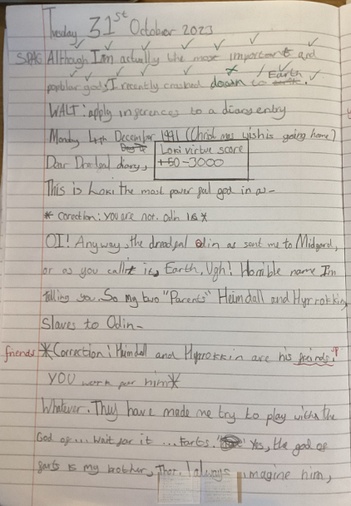 Tuesday 31st October 2023
SPAG Although I'm actually the most important and
popular god, I recently crashed down to Earth
WALT: apply inferences to a diary entry
Monday 4th December 1991 (Christmas wish is going home)
Day 4
Loki virtue score
+50-3000
Dear Dredful diary,
This is Loki the most power ful god in as-
* Corection: you are not. Odin is *
OI! Anyway, the dreadful odin as sent me to Midgard,
or as you call it is, Earth, Ugh! Horrible name I'm
telling you. So my two "Parents" Heimdall and Hyrrokkin,
Slaves to Odin-
friends *Correction: Heimdall and Hyrrokkin are his frinds.
YOU work for him*
Whatever. They have made me try to play with the
God of... Wait for it ... Farts. Yes, the god of
farts is my brother, Thor. I always imagine him,